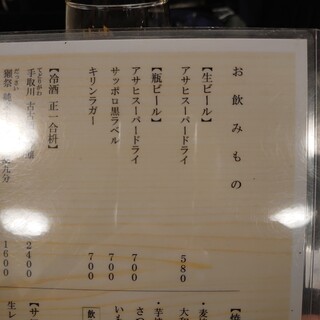 お飲みもの
【生ビール】
アサヒスーパードライ 580
【瓶ビール】
アサヒスーパードライ 700
サッポロ黒ラベル 700
キリンラガー 700
【冷酒 正一合枡】
手取川 古古 2400
獺祭 1600
・麦焼
大和
・芋焼
さつ
いも
飲
【サ
生レ